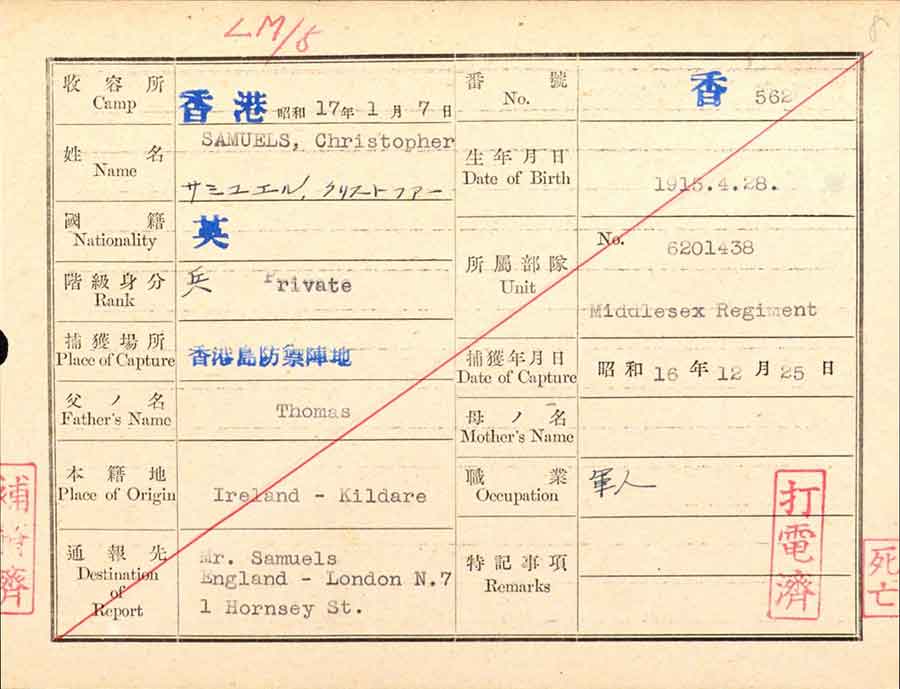 LM/5
8
收容所
Camp
香港 昭和 17年 1月 7日
番號
No.
香 562
姓名
Name
SAMUELS, Christopher
サミユエール, クリストファー
生年月日
Date of Birth
1915.4.28.
國籍
Nationality
英
階級身分
Rank
兵 Private
所屬部隊
Unit
No. 6201438
Middlesex Regiment
捕獲場所
Place of Capture
香港島防禦陣地
捕獲年月日
Date of Capture
昭和 16年 12月 25日
父ノ名
Father's Name
Thomas
母ノ名
Mother's Name
本籍地
Place of Origin
Ireland - Kildare
職業
Occupation
軍人
通報先
Destination
of
Report
Mr. Samuels
England - London N.7
1 Hornsey St.
特記事項
Remarks
打電濟
死亡